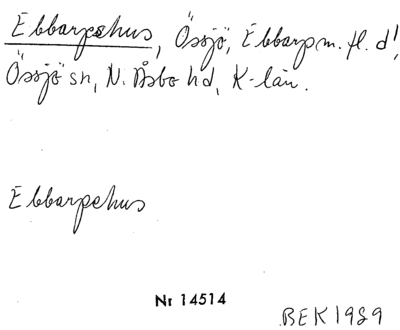 Ebbarpshus, Össjö, Ebbarp m. fl. d!,
Össjö sn, N. Åsbo hd, K-län.
Ebbarpshus
Nr 14514
BEK 1989